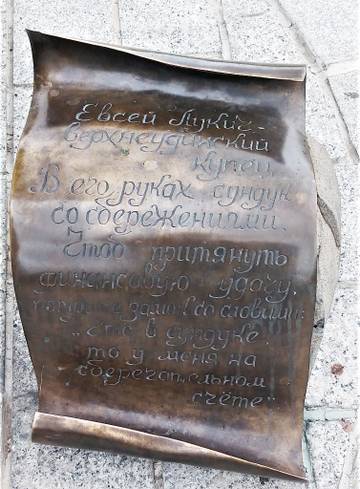 Евсей Лукич -
верхнеудинский
купец.
В его руках сундук
со сбережениями.
Чтоб притянуть
финансовую удачу,
замок со словами:
"Что в сундуке,
то у меня на
сберегательном
счёте"